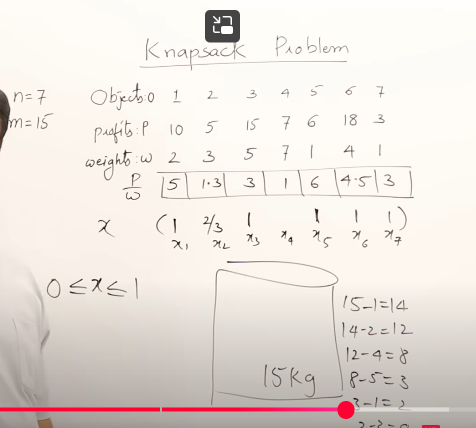 Knapsack Problem
n=7
m=15
Objects:O 1 2 3 4 5 6 7
profits:P 10 5 15 7 6 18 3
weights:w 2 3 5 7 1 4 1
P/w 5 1.3 3 1 6 4.5 3
x (1 2/3 1 1 1 1)
x₁ x₂ x₃ x₄ x₅ x₆ x₇
0≤x≤1
15-1=14
14-2=12
12-4=8
8-5=3
3-1=2
15Kg